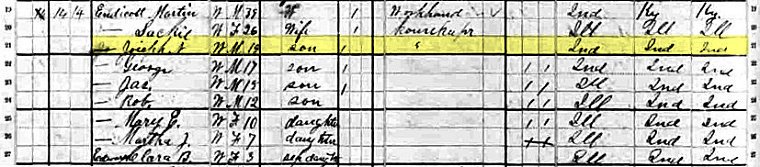 19 14 4 Endicott Martin W M 38 1 Workhand Ind Ky Ky
20 — W F 26 Wife 1 Ill Ill Ill
21 — W M 19 son 1 " Ind Ind Ind
22 — George W M 17 son 1 Ind Ind Ind
23 — Jas. W M 15 son 1 1 Ill Ind Ind
24 — Rob. W M 12 son 1 1 Ill Ind Ind
25 — Mary E. W F 10 daughter 1 1 Ill Ind Ind
26 — Martha J. W F 7 daughter Ill Ind Ind
27 Clara B. W F 3 step daughter Ill Ind Ind